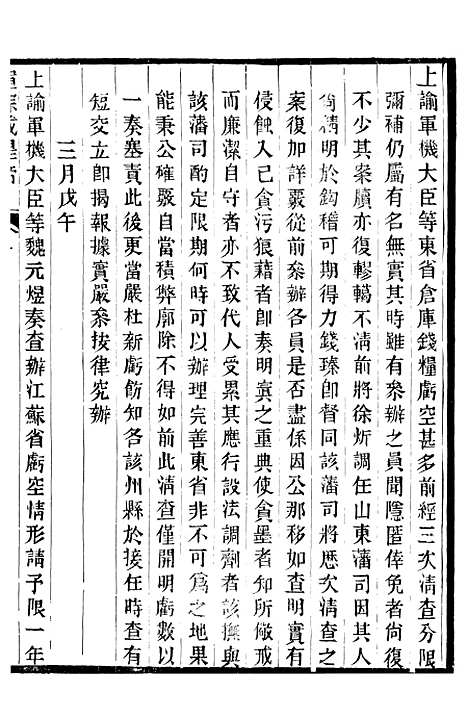 上諭軍機大臣等東省倉庫錢糧虧空甚多前經三次淸查分限
彌補仍屬有名無實其時雖有叅辦之員聞隱匿倖免者尙復
不少其案牘亦復轇轕不淸前將徐炘調任山東藩司因其人
尙淸明於鈎稽可期得力錢臻卽督同該藩司將厯次淸查之
案復加詳覈從前叅辦各員是否盡係因公那移如查明實有
侵蝕入己貪污狼藉者卽奏明寘之重典使貪墨者知所儆戒
而廉潔自守者亦不致代人受累其應行設法調劑者該撫與
該藩司酌定限期何時可以辦理完善東省非不可爲之地果
能秉公確覈自當積弊廓除不得如前此淸查僅開明虧數以
一奏塞責此後更當嚴杜新虧飭知各該州縣於接任時查有
短交立卽揭報據實嚴叅按律究辦
三月戊午
上諭軍機大臣等魏元煜奏查辦江蘇省虧空情形請予限一年